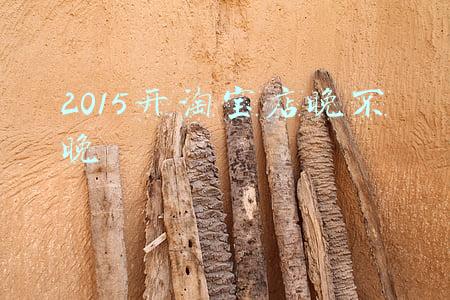 2015开淘宝店晚不
晚